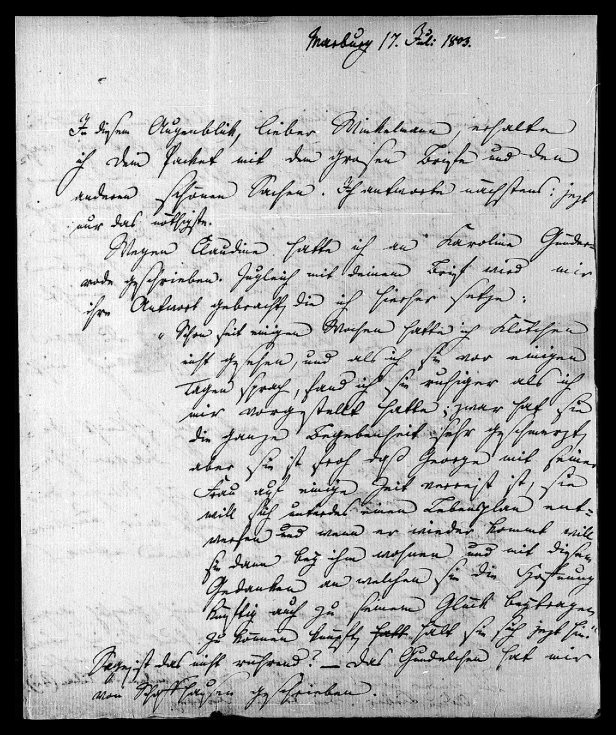 Marburg 17. Juli 1803.
In diesem Augenblik, lieber Winkelmann, erhalte
ich dein Packet mit dem grosen Briefe und den
anderen schönen Sachen. Ich antworte nächstens: jezt
nur das nöthigste.
Wegen Claudine hatte ich an Karoline Günder-
rode geschrieben. Zugleich mit deinem Brief wird mir
ihre Antwort gebracht, die ich hierher setze:
"Schon seit einigen Wochen hatte ich Klötchen
nicht gesehen, und als ich sie vor einigen
Tagen sprach, fand ich sie ruhiger als ich
mir vorgestellt hatte; zwar hat sie
die ganze Begebenheit sehr geschmerzt,
aber sie ist froh daß George mit seiner
Frau auf einige Zeit verreist ist, sie
will sich unterdes einen Lebensplan ent-
werfen und wenn er wieder kommt will
sie dann bey ihm wohnen und mit diesem
Gedanken an welchen sie die Hoffnung
künftig auch zu seinem Glück beytragen
zu können knüpft, hält sie sich jezt hin"
ist das nicht rührend? — Das Gundelchen hat mir
von Schaffhausen geschrieben.